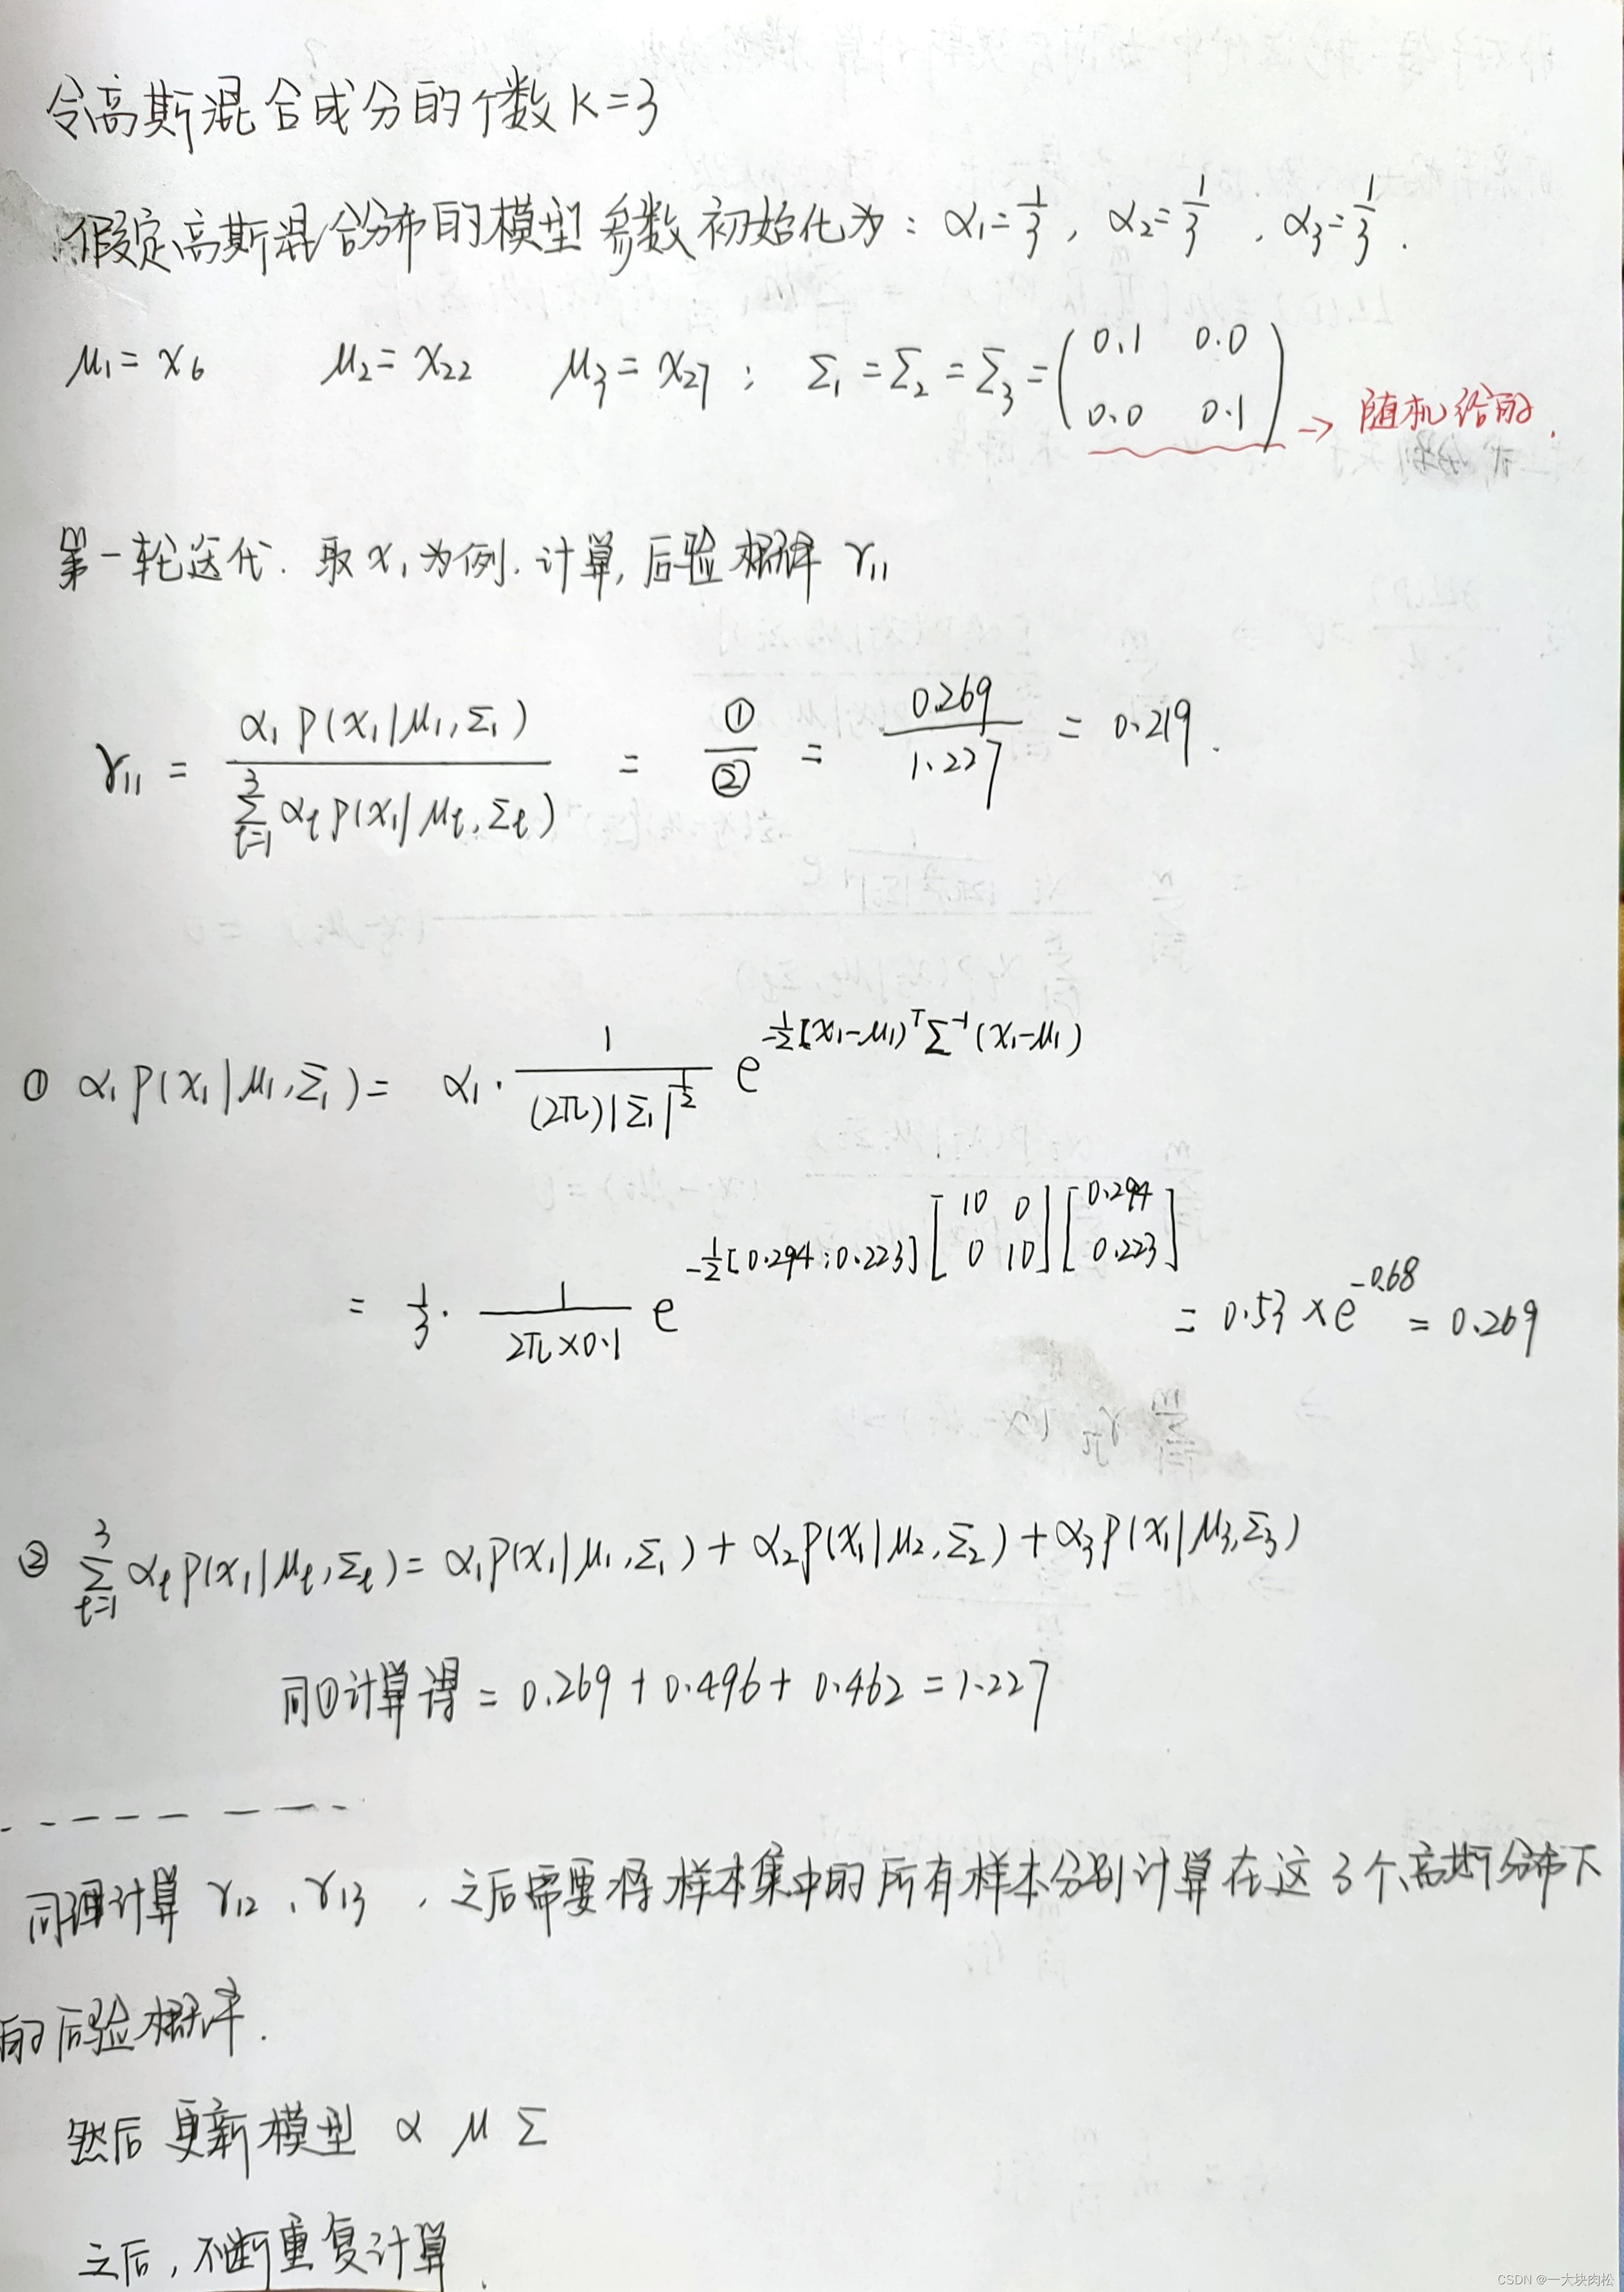 令高斯混合成分的个数 K=3
假定高斯混合分布的模型参数初始化为: α₁=1/3, α₂=1/3, α₃=1/3.
μ₁=x₆ μ₂=x₂₂ μ₃=x₂₇; Σ₁=Σ₂=Σ₃=(0.1 0.0
0.0 0.1) → 随机给的.
第一轮迭代. 取x₁为例. 计算, 后验概率 γ₁₁
γ₁₁ = α₁p(x₁|μ₁,Σ₁) / Σ_{t=1}^{3} α_t p(x₁|μ_t,Σ_t) = ①/② = 0.269/1.227 = 0.219.
① α₁p(x₁|μ₁,Σ₁) = α₁· 1/((2π)|Σ₁|^{1/2}) e^{-1/2[x₁-μ₁)^T Σ^{-1}(x₁-μ₁)}
= 1/3 · 1/(2π×0.1) e^{-1/2[0.294;0.223][10 0; 0 10][0.294; 0.223]} = 0.53×e^{-0.68} = 0.269
② Σ_{t=1}^{3} α_t p(x₁|μ_t,Σ_t) = α₁p(x₁|μ₁,Σ₁) + α₂p(x₁|μ₂,Σ₂) + α₃p(x₁|μ₃,Σ₃)
同①计算得 = 0.269 + 0.496 + 0.462 = 1.227
同理计算 γ₁₂、γ₁₃ , 之后需要将样本集中的所有样本分别计算在这3个高斯分布下
的后验概率.
然后更新模型 α μ Σ
之后, 不断重复计算.
CSDN @一大块肉松